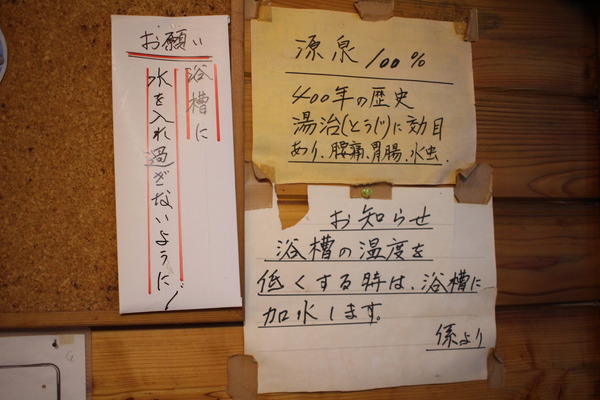 お願い
浴槽に
水を入れ過ぎないように!
源泉100%
400年の歴史
湯治(とうじ)に効目
あり、腰痛、胃腸、水虫.
お知らせ
浴槽の温度を
低くする時は、浴槽に
加水します。
係より